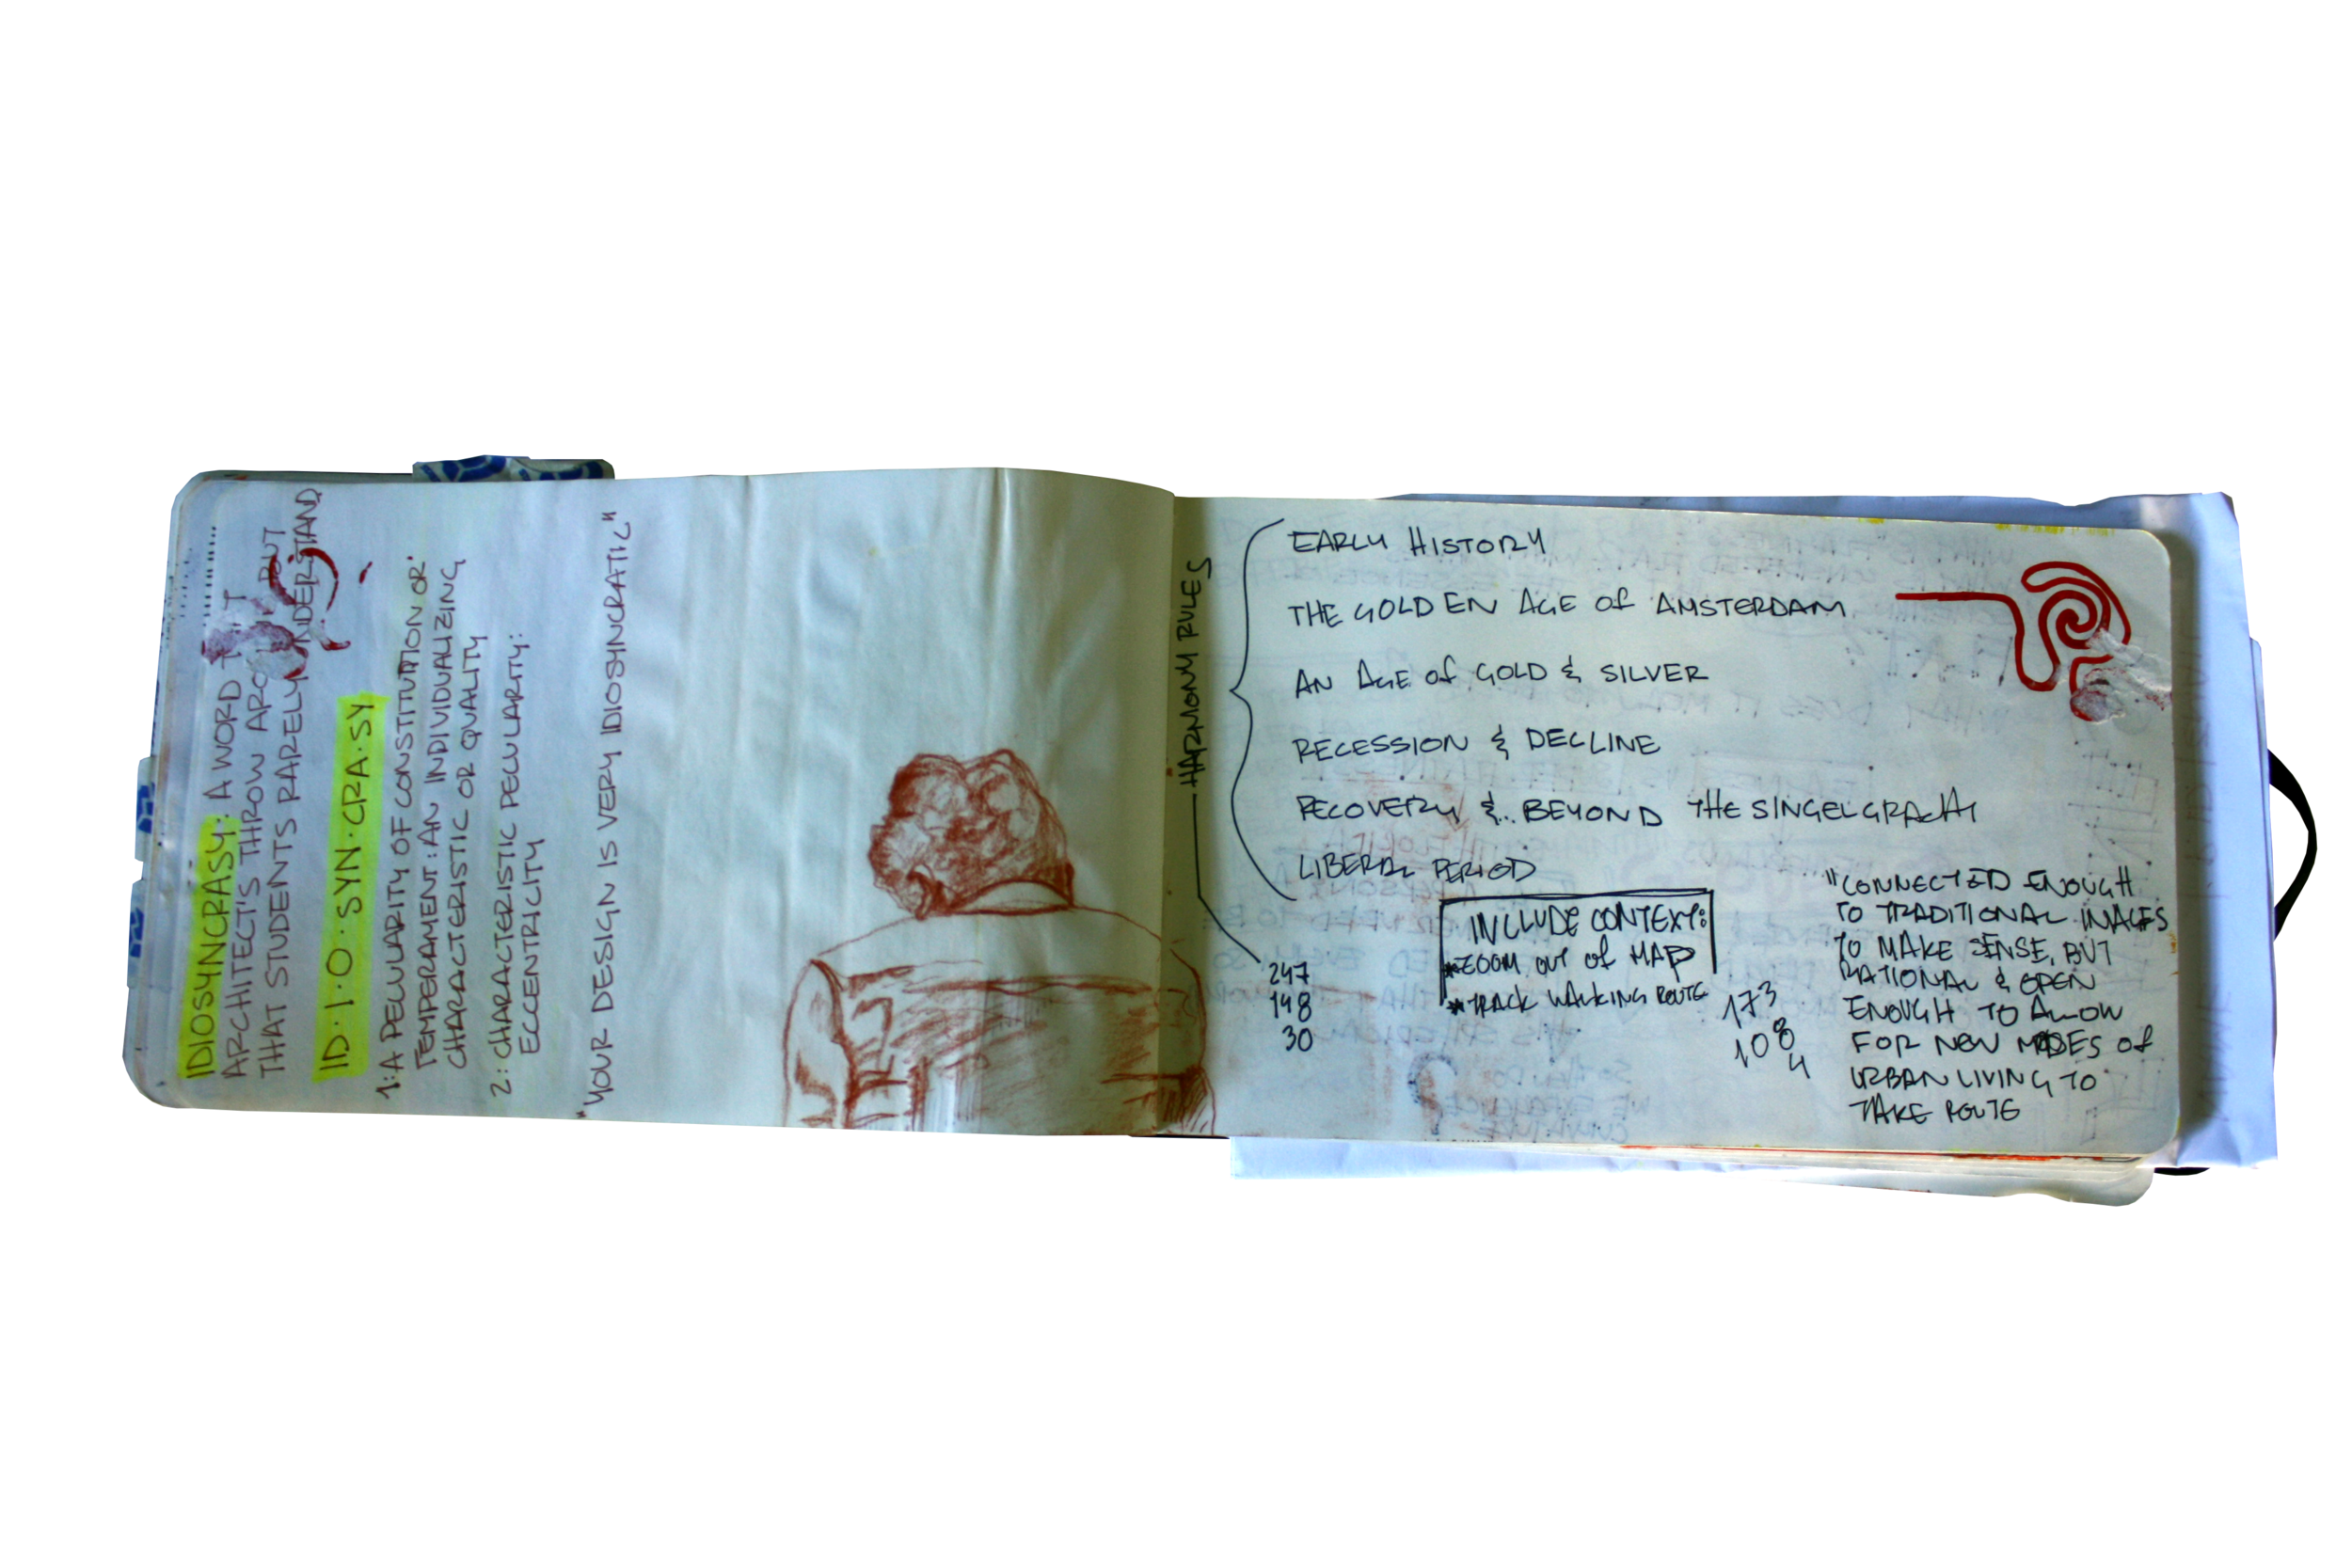 IDIOSYNCRASY: A WORD
ARCHITECT'S THROW BUT
THAT STUDENTS RARELY UNDERSTAND
ID·I·O·SYN·CRA·SY
1: A PECULARITY OF CONSTITUTION OR
TEMPERAMENT: AN INDIVIDUALIZING
CHARACTERISTIC OR QUALITY
2: CHARACTERISTIC PECULARITY:
ECCENTRICITY
"YOUR DESIGN IS VERY IDIOSYNCRATIC"
HARMONY RULES
EARLY HISTORY
THE GOLDEN AGE OF AMSTERDAM
AN AGE OF GOLD & SILVER
RECESSION & DECLINE
RECOVERY &... BEYOND THE SINGELGRACHT
LIBERAL PERIOD
247
148
30
INCLUDE CONTEXT:
*ZOOM OUT OF MAP
*TRACK WALKING ROUTE
173
108
4
"CONNECTED ENOUGH
TO TRADITIONAL IMAGES
TO MAKE SENSE, BUT
RATIONAL & OPEN
ENOUGH TO ALLOW
FOR NEW MODES OF
URBAN LIVING TO
TAKE ROUTE